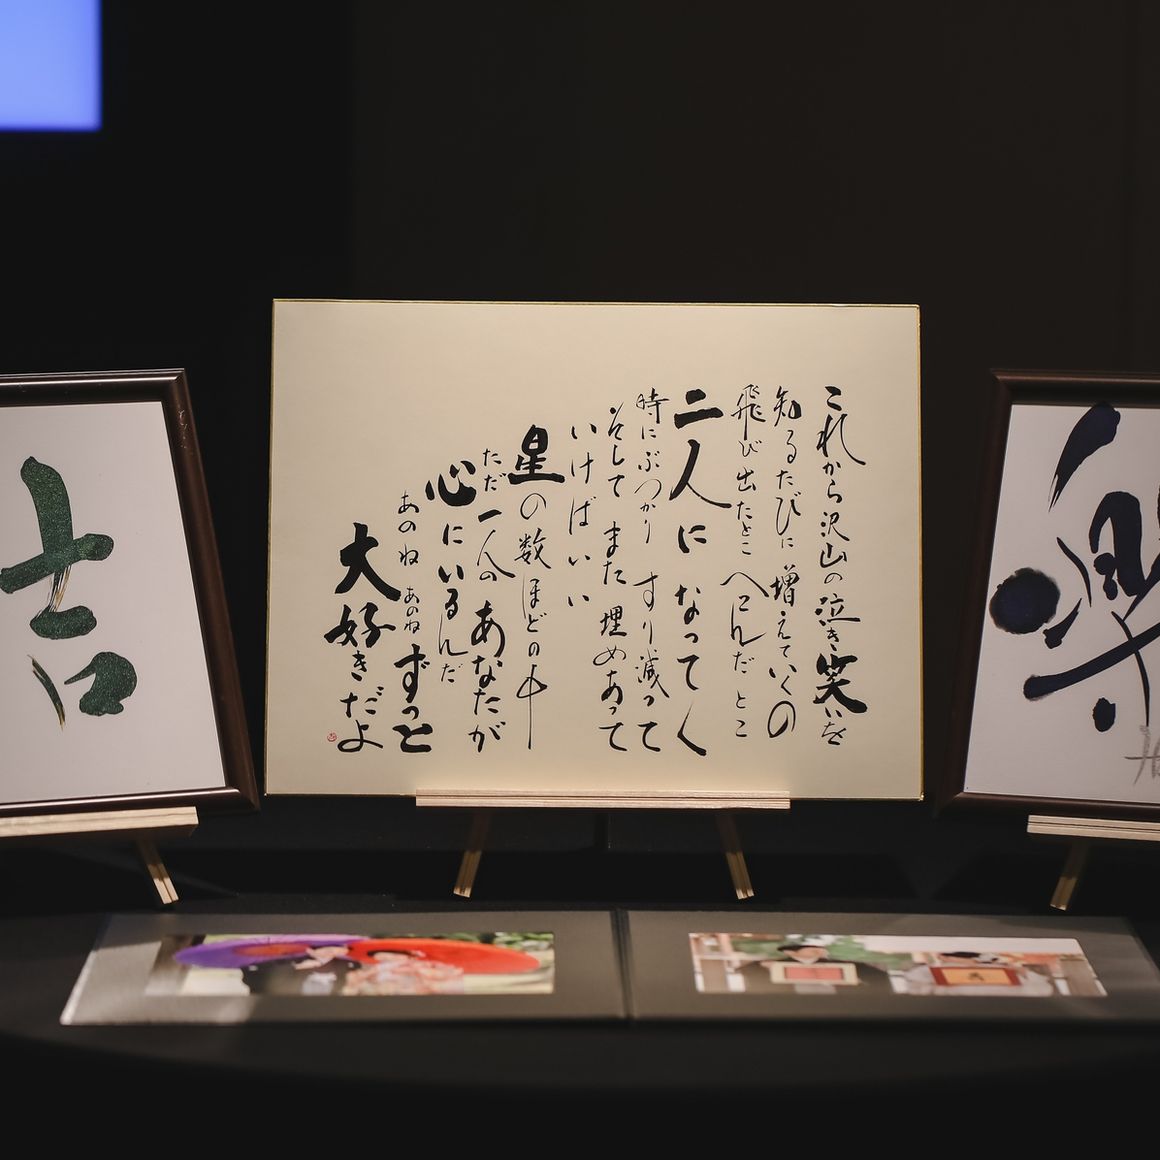 これから沢山の泣き笑いを
知るたびに増えていくの
飛び出たとこへこんだとこ
二人になってく
時にぶつかりすり減って
そしてまた埋めあって
いけばいい
星の数ほどの中
ただ一人のあなたが
心にいるんだ
あのねあのねずっと
大好きだよ
吉
楽